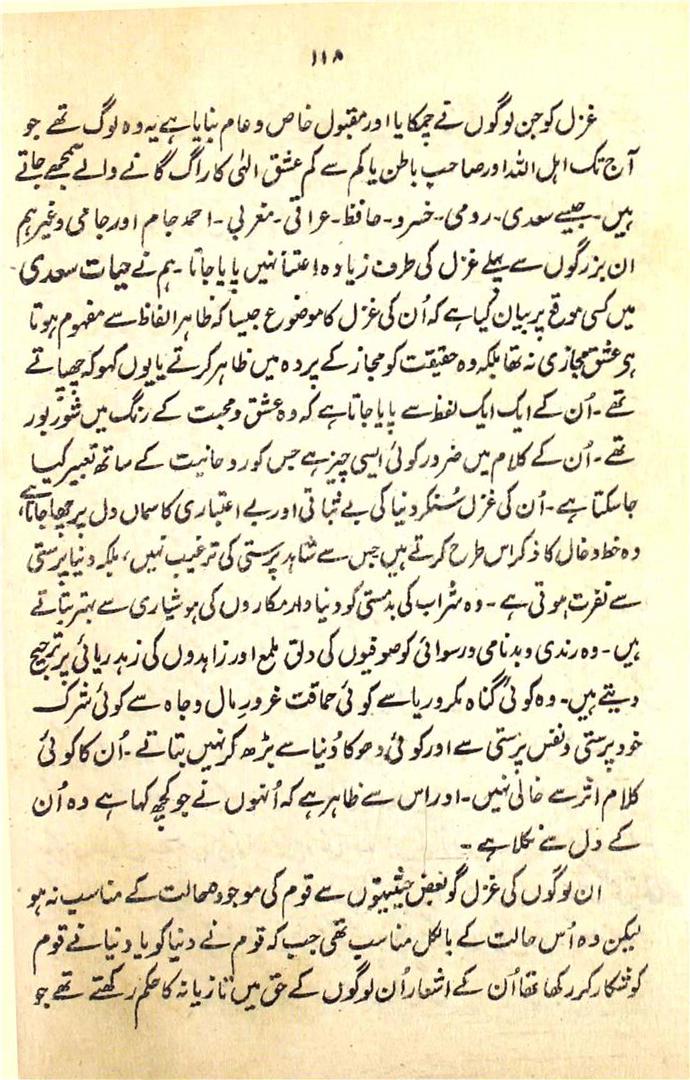 ۱۱۸
غزل کو جن لوگوں نے چمکایا اور مقبول خاص و عام بنایا ہے یہ وہ لوگ تھے جو
آج تک اہل اللہ اور صاحب باطن یا کم سے کم عشق الٰہی کا راگ گانے والے سمجھے جاتے
ہیں۔ جیسے سعدی۔ رومی۔ خسرو۔ حافظ۔ عراقی۔ مغربی۔ احمد جام اور جامی وغیرہم
ان بزرگوں سے پہلے غزل کی طرف زیادہ اعتنا نہیں پایا جاتا۔ ہم نے حیات سعدی
میں کسی موقع پر بیان کیا ہے کہ اُن کی غزل کا موضوع جیسا کہ ظاہر الفاظ سے مفہوم ہوتا
ہو عشق مجازی نہ تھا بلکہ وہ حقیقت کو مجاز کے پردہ میں ظاہر کرتے یا یوں کہو کہ چھپاتے
تھے۔ اُن کے ایک ایک لفظ سے پایا جاتا ہے کہ وہ عشق و محبت کے رنگ میں شوربور
تھے۔ اُن کے کلام میں ضرور کوئی ایسی چیز ہے جس کو روحانیت کے ساتھ تعبیر کیا
جاسکتا ہے۔ اُن کی غزل سُنکر دنیا کی بے ثباتی اور بے اعتباری کا سماں دل پر چھا جاتا ہے،
وہ خط و خال کا ذکر اس طرح کرتے ہیں جس سے شاہد پرستی کی ترغیب نہیں، بلکہ دنیا پرستی
سے نفرت ہوتی ہے۔ وہ شراب کی بدمستی کو دنیا دار مکاروں کی ہوشیاری سے بہتر بتاتے
ہیں۔ وہ رندی و بدنامی و رسوائی کو صوفیوں کی دلق ملمع اور زاہدوں کی زہد ریائی پر ترجیح
دیتے ہیں۔ وہ کوئی گناہ مکر و ریا سے کوئی حماقت غرورِ مال و جاہ سے کوئی شرک
خود پرستی و نفس پرستی سے اور کوئی دھوکا دُنیا سے بڑھ کر نہیں بتاتے۔ اُن کا کوئی
کلام اثر سے خالی نہیں۔ اور اس سے ظاہر ہے کہ اُنہوں نے جو کچھ کہا ہے وہ اُن
کے دل سے نکلا ہے۔
ان لوگوں کی غزل گو بعض حیثیتوں سے قوم کی موجودہ حالت کے مناسب نہ ہو
لیکن وہ اُس حالت کے بالکل مناسب تھی جب کہ قوم نے دنیا کو یا دنیا نے قوم
کو شکار کر رکھا تھا اُن کے اشعار اُن لوگوں کے حق میں تازیانہ کا حکم رکھتے تھے جو